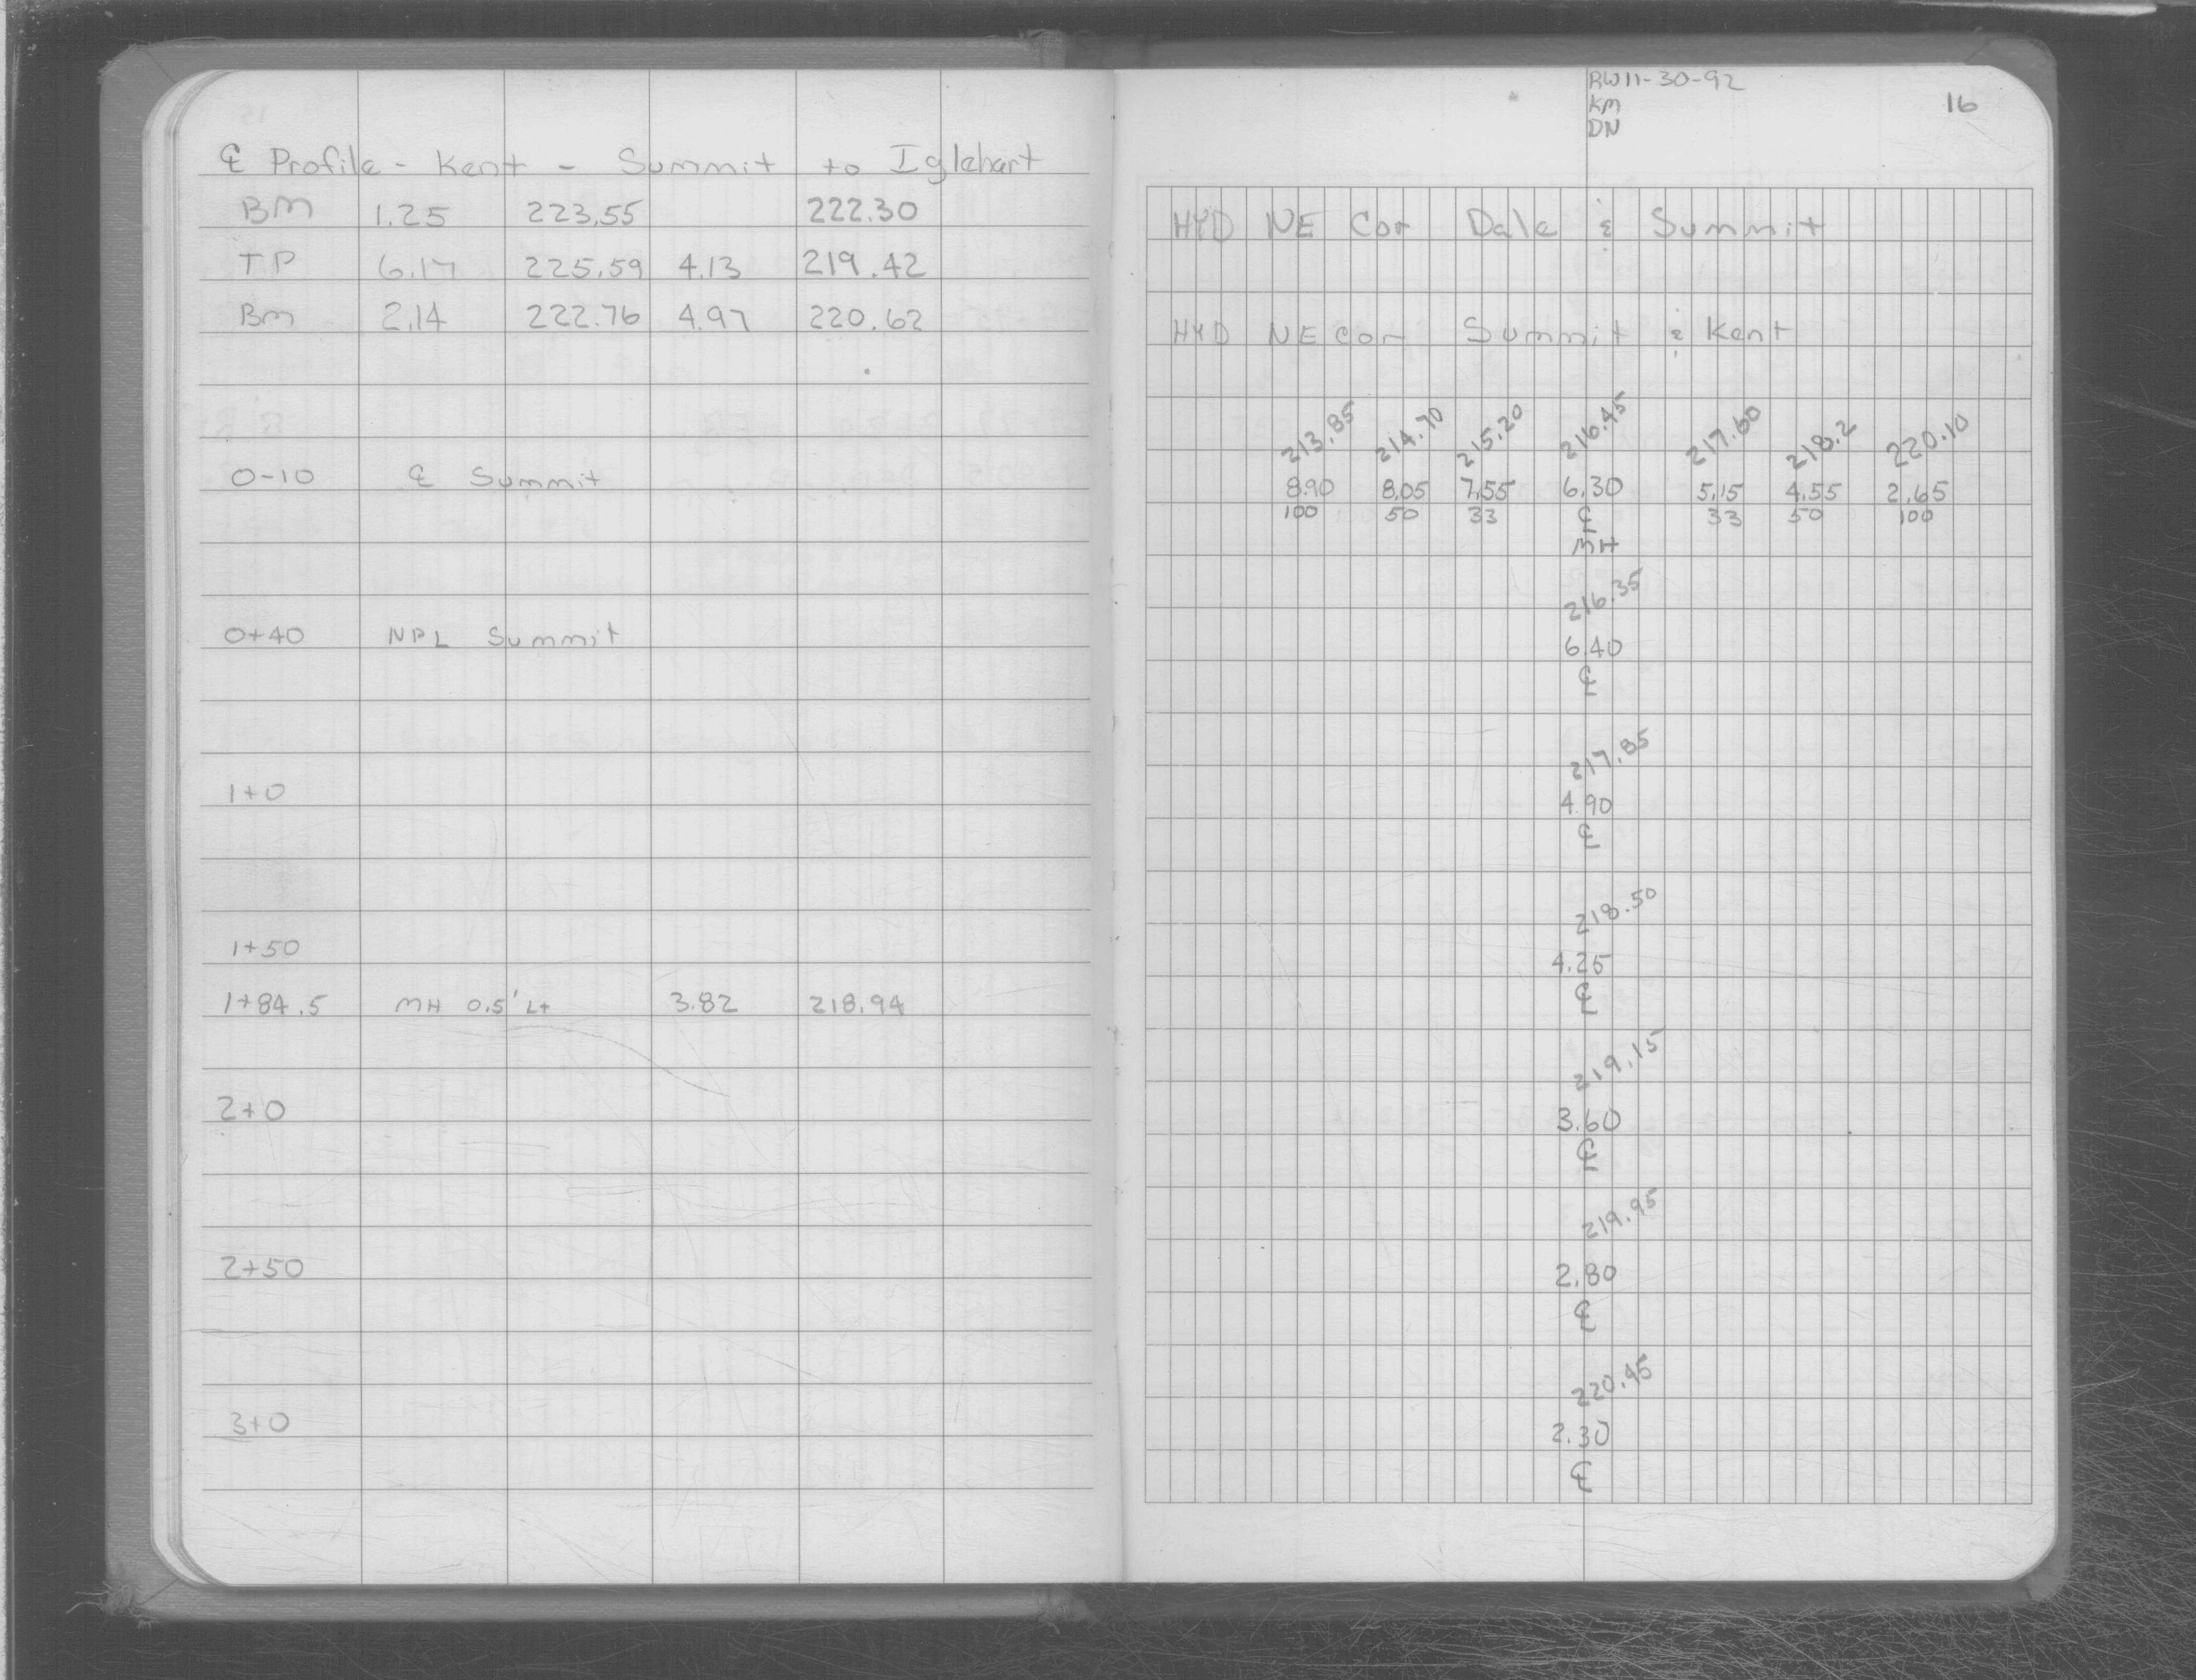 ℄ Profile - Kent - Summit to Iglehart
BM 1.25 223.55 222.30
TP 6.17 225.59 4.13 219.42
BM 2.14 222.76 4.97 220.62
0-10 ℄ Summit
0+40 NPL Summit
1+0
1+50
1+84.5 MH 0.5' Lt 3.82 218.94
2+0
2+50
3+0
RW 11-30-92
KM
DN
16
HYD NE Cor Dale & Summit
HYD NE Cor Summit & Kent
213.85 214.70 215.20 216.45 217.60 218.2 220.10
8.90 8.05 7.55 6.30 5.15 4.55 2.65
100 50 33 ℄ 33 50 100
MH
216.35
6.40
℄
217.85
4.90
℄
218.50
4.25
℄
219.15
3.60
℄
219.95
2.80
℄
220.45
2.30
℄